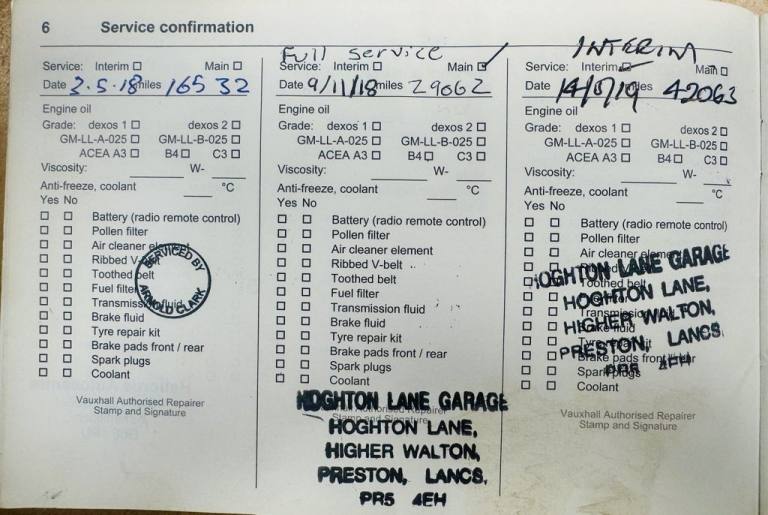 6 Service confirmation
Service: Interim Main
Date 2.5.18 miles 165 32
Engine oil
Grade: dexos 1 dexos 2
GM-LL-A-025 GM-LL-B-025
ACEA A3 B4 C3
Viscosity: W-
Anti-freeze, coolant °C
Yes No
Battery (radio remote control)
Pollen filter
Air cleaner element
Ribbed V-belt
Toothed belt
Fuel filter
Transmission fluid
Brake fluid
Tyre repair kit
Brake pads front / rear
Spark plugs
Coolant
SERVICED BY
ARNOLD CLARK
Vauxhall Authorised Repairer
Stamp and Signature
Full service
Service: Interim Main
Date 9/11/18 miles 29062
Engine oil
Grade: dexos 1 dexos 2
GM-LL-A-025 GM-LL-B-025
ACEA A3 B4 C3
Viscosity: W-
Anti-freeze, coolant °C
Yes No
Battery (radio remote control)
Pollen filter
Air cleaner element
Ribbed V-belt
Toothed belt
Fuel filter
Transmission fluid
Brake fluid
Tyre repair kit
Brake pads front / rear
Spark plugs
Coolant
Authorised Repairer
Stamp and Signature
HOGHTON LANE GARAGE
HOGHTON LANE,
HIGHER WALTON,
PRESTON, LANCS,
PR5 4EH
INTERIM
Service: Interim Main
Date miles 42063
Engine oil
Grade: dexos 1 dexos 2
GM-LL-A-025 GM-LL-B-025
ACEA A3 B4 C3
Viscosity: W-
Anti-freeze, coolant °C
Yes No
Battery (radio remote control)
Pollen filter
Air cleaner element
Toothed belt
Transmission
Brake fluid
Brake pads front / rear
Spark plugs
Coolant
HOGHTON LANE GARAGE
HOGHTON LANE,
HIGHER WALTON,
PRESTON, LANCS.
PR5 4EH
Vauxhall Authorised Repairer
Stamp and Signature